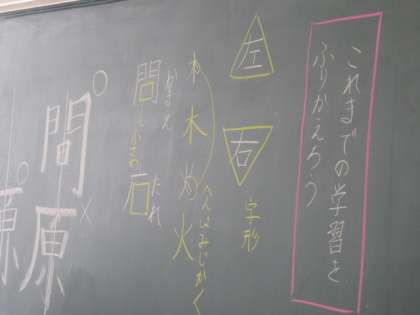 これまでの学習を
ふりかえろう
左
右
字形
木
火
へんはみじかく
間
石
たれ
かまえ
間
原
原